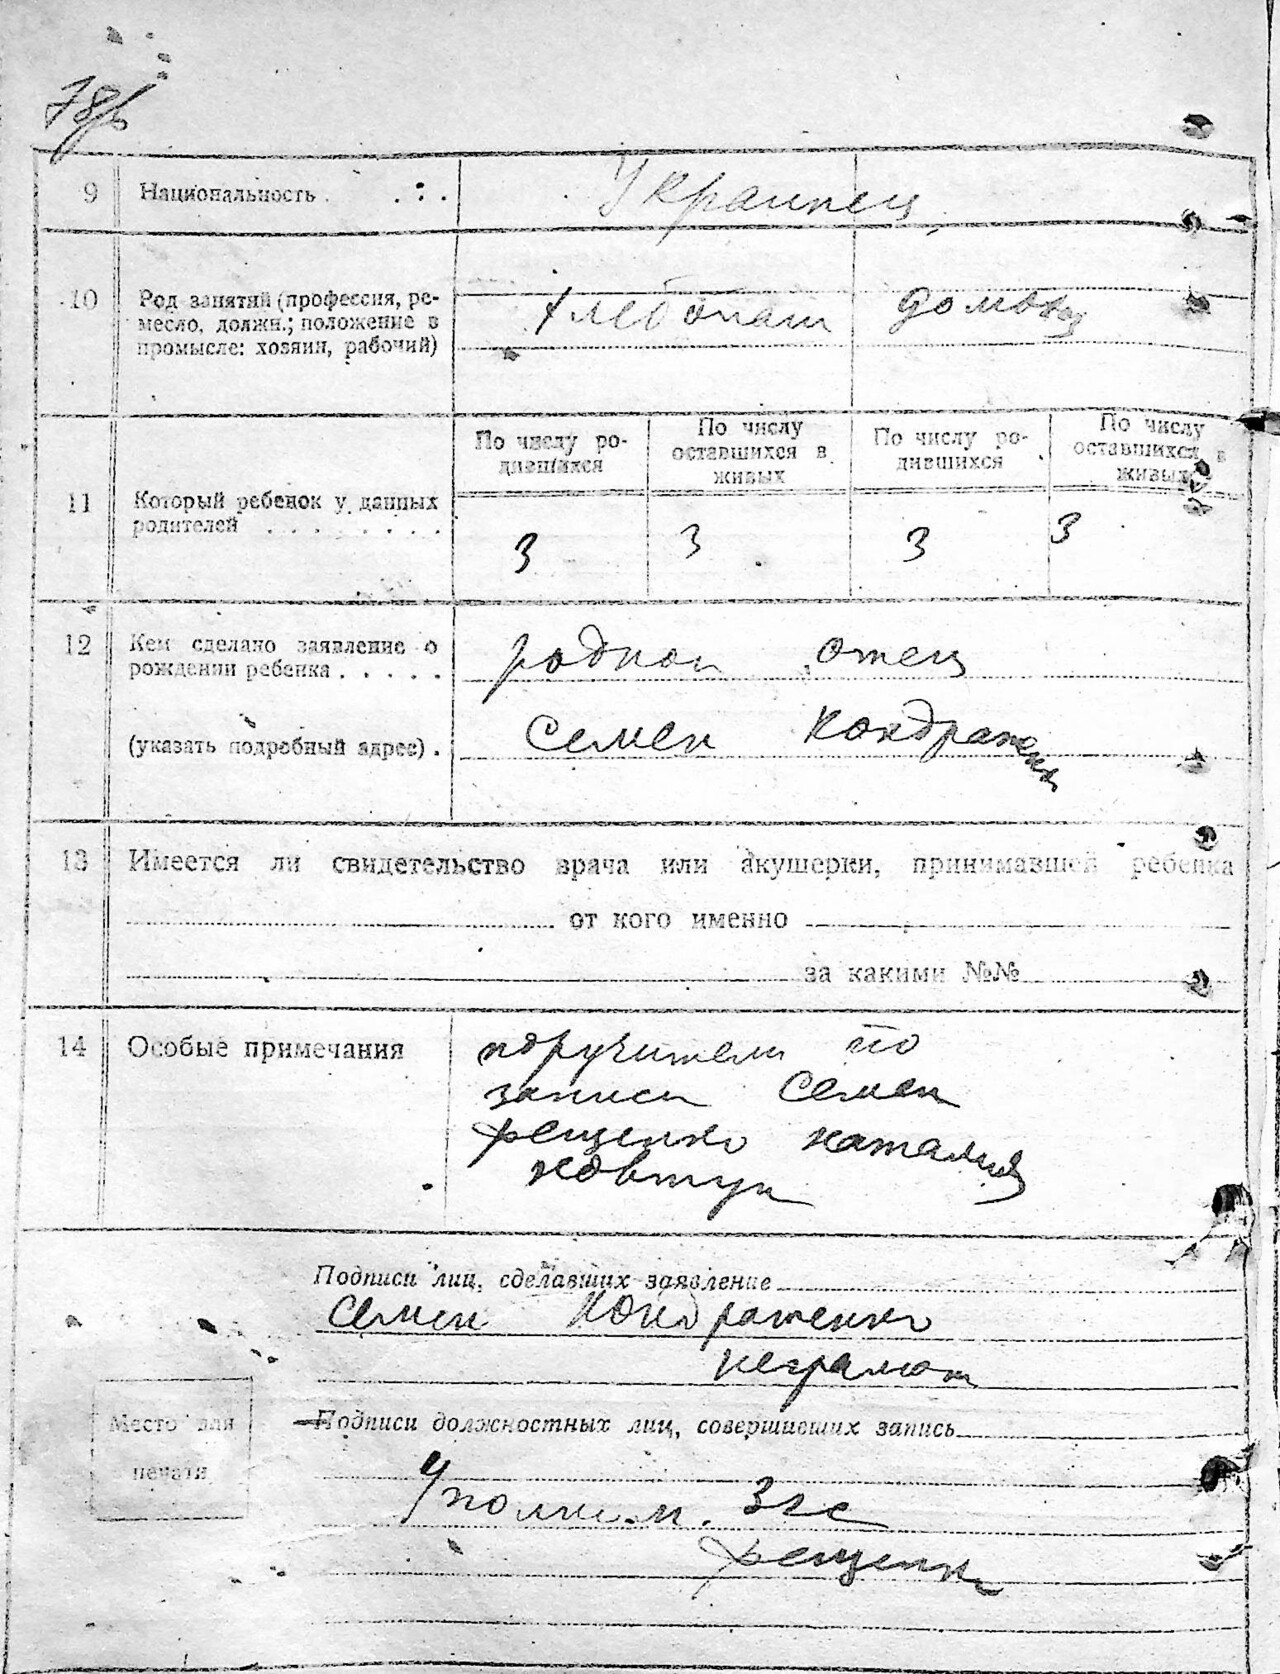 78/б
9 Национальность . : . Украинец
10 Род занятий (профессия, ре-
месло, должн.; положение в
промысле: хозяин, рабочий)
хлебопаш домохоз
11 Который ребенок у данных
родителей . . . . . . . .
По числу ро-
дившихся
По числу
оставшихся в
живых
По числу ро-
дившихся
По числу
оставшихся в
живых
3 3 3 3
12 Кем сделано заявление о
рождении ребенка . . . . .
(указать подробный адрес) .
родной отец
Семен Кондратенко
13 Имеется ли свидетельство врача или акушерки, принимавшей ребенка
от кого именно
за какими №№
14 Особые примечания
поручители по
записи Семен
Рещенко Наталия
Ковтун
Подписи лиц, сделавших заявление
Семен Кондратенко
неграмот
Подписи должностных лиц, совершивших запись
Место для
печати
Уполном. Згс
Рещенко